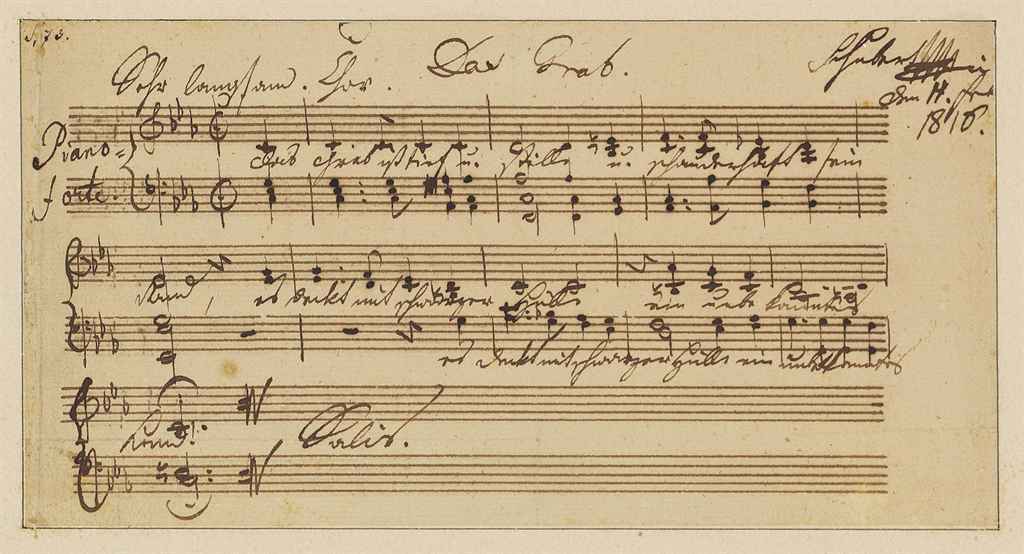 Das Grab.
Schubert
Sehr langsam. Chor.
den 11. Feb
1816.
Piano-
forte.
Das Grab ist tief u. stille u. schauderhaft sein
Rand, es deckt mit schwarzer Hülle ein unbekanntes
es deckt mit schwarzer Hülle ein unbekanntes
Land!
Salis.